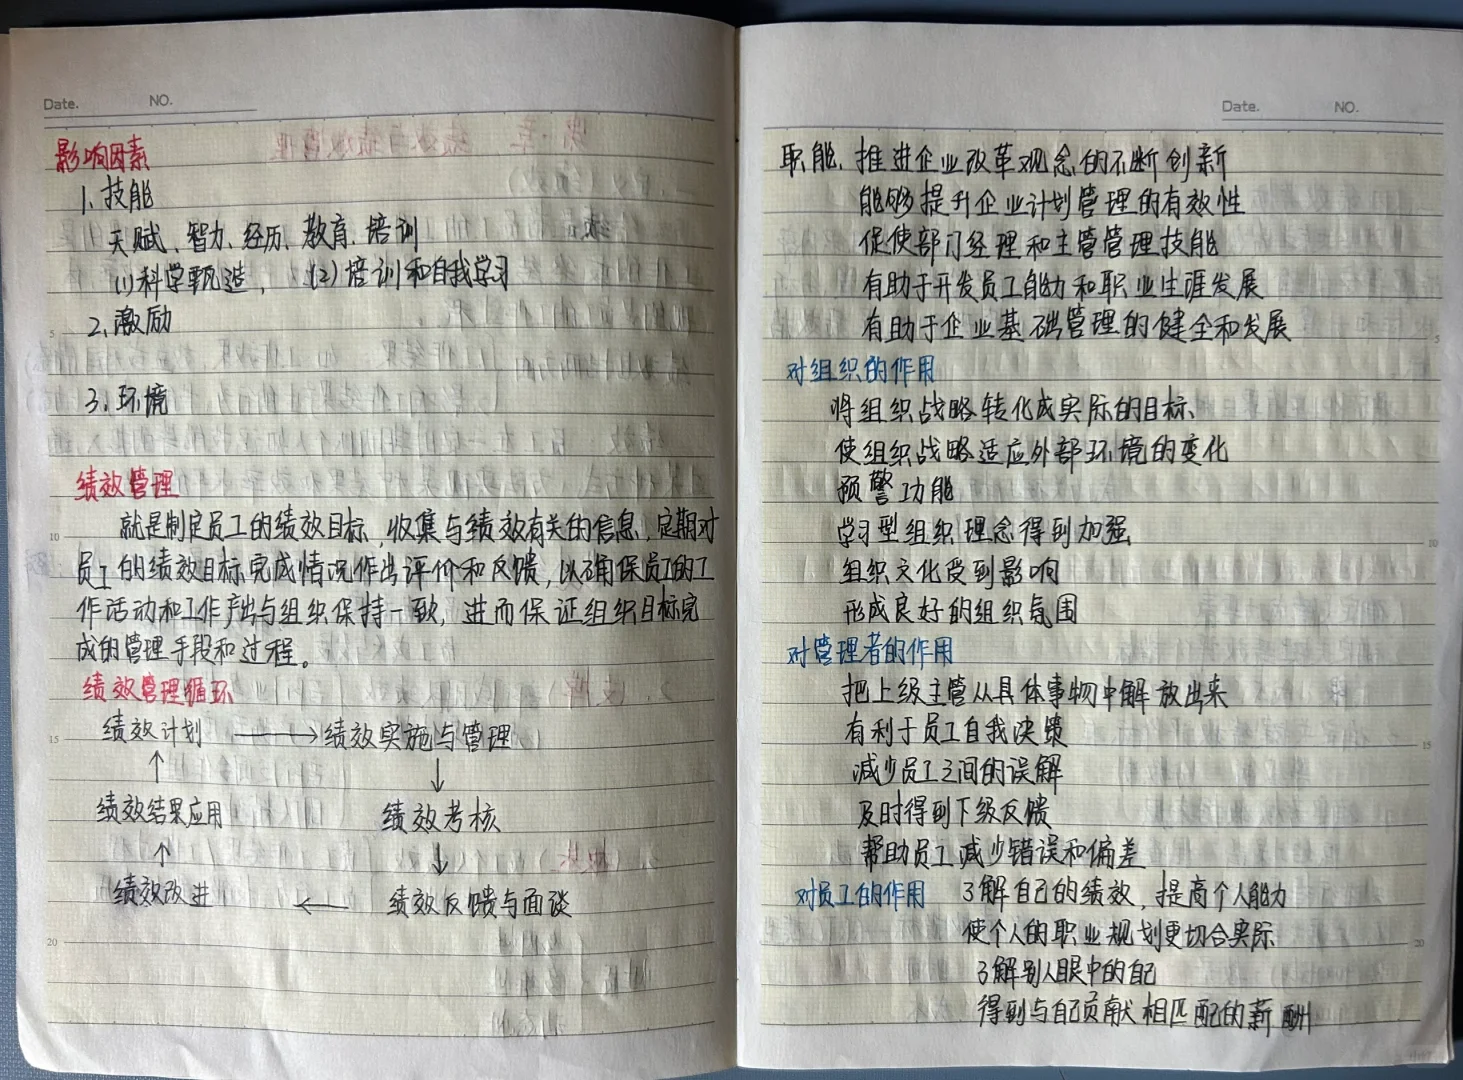 Date. NO.
影响因素
1、技能
天赋、智力、经历、教育、培训
(1)科学甄选, (2)培训和自我学习
2、激励
3、环境
绩效管理
就是制定员工的绩效目标,收集与绩效有关的信息,定期对
员工的绩效目标完成情况作出评价和反馈,以确保员工的工
作活动和工作产出与组织保持一致,进而保证组织目标完
成的管理手段和过程。
绩效管理循环
绩效计划 → 绩效实施与管理
↑ ↓
绩效结果应用 绩效考核
↑ ↓
绩效改进 ← 绩效反馈与面谈
5
10
15
20
Date. NO.
职能、推进企业改革观念的不断创新
能够提升企业计划管理的有效性
促使部门经理和主管管理技能
有助于开发员工能力和职业生涯发展
有助于企业基础管理的健全和发展
对组织的作用
将组织战略转化成实际的目标
使组织战略适应外部环境的变化
预警功能
学习型组织理念得到加强
组织文化受到影响
形成良好的组织氛围
对管理者的作用
把上级主管从具体事物中解放出来
有利于员工自我决策
减少员工之间的误解
及时得到下级反馈
帮助员工减少错误和偏差
对员工的作用 了解自己的绩效,提高个人能力
使个人的职业规划更切合实际
了解别人眼中的自己
得到与自己贡献相匹配的薪酬
5
10
15
20